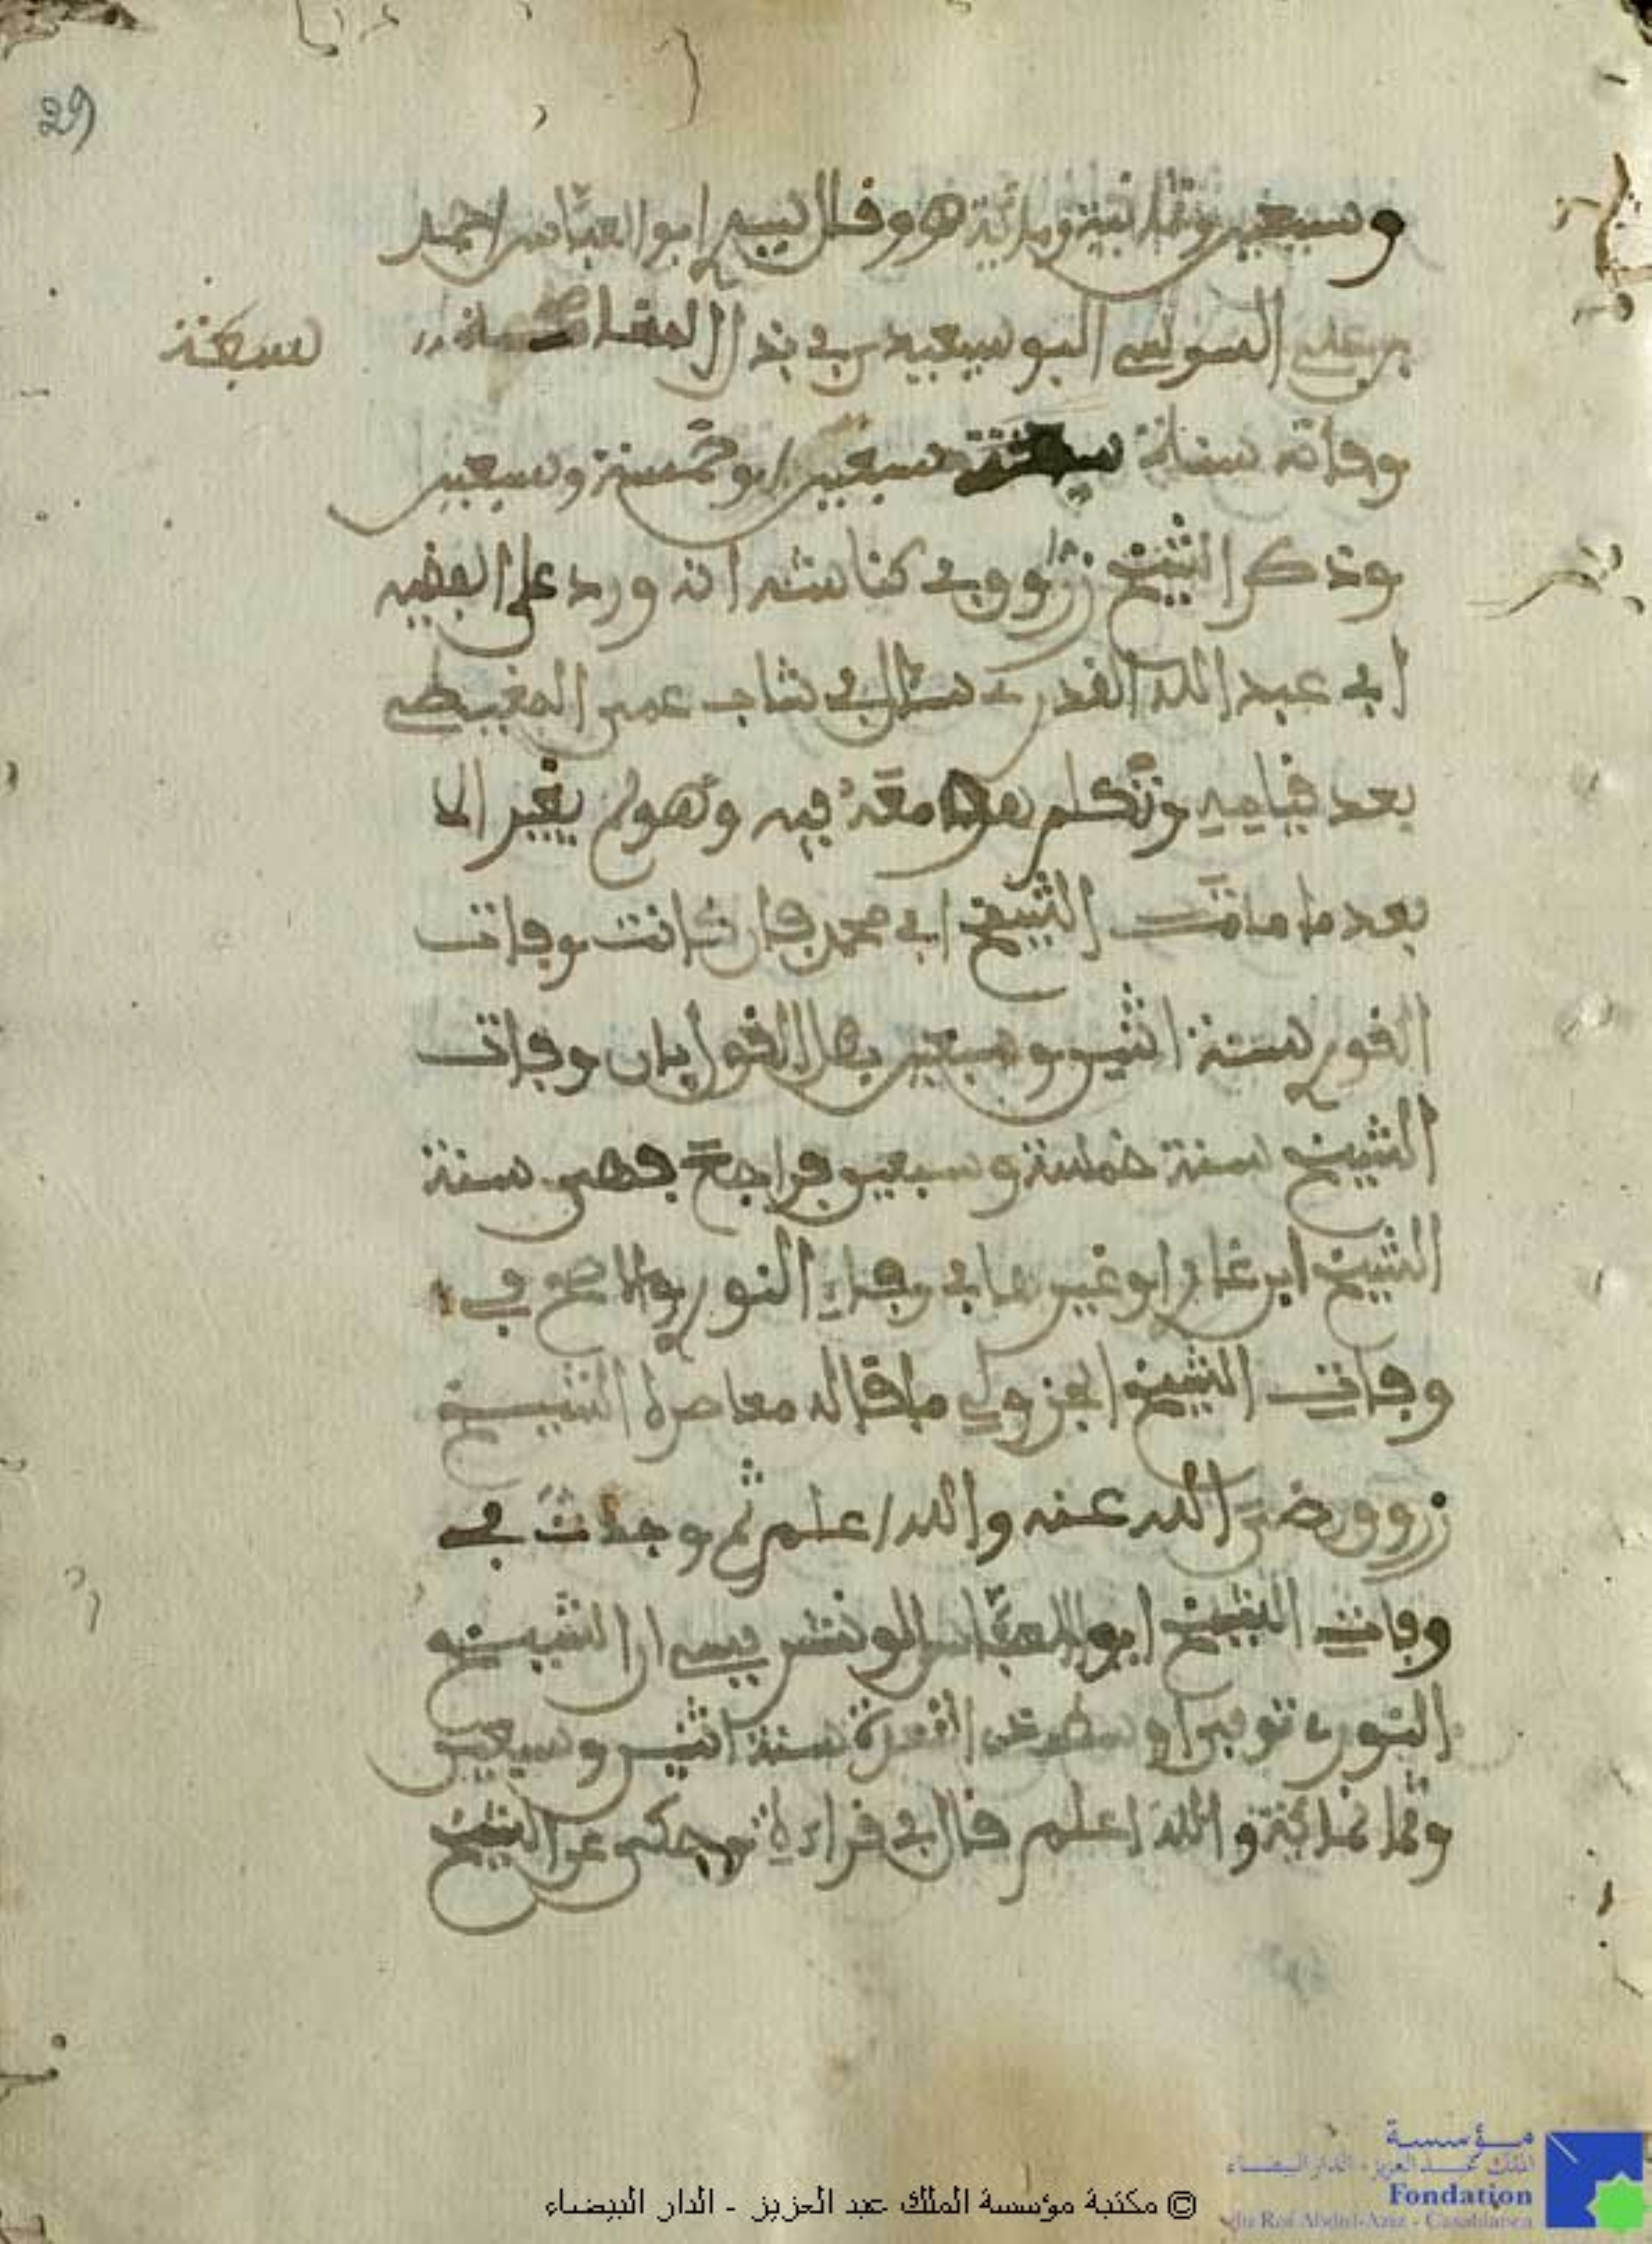 29
وسبعين وثمانية ومائية هو وقال سيدي ابو العباس احمد
بن علي السوسي البوسعيدي في بذل المناصحة
سبعة
وفاته سنة سبعة وسبعين او خمسة وسبعين
وذكر الشيخ زروق في كناشه انه ورد على الفقيه
ابي عبد الله القوري سؤال في شان عمر المغيطي
بعد قيامه وتكلم معه فيه وهو لم يغير الا
بعد ما مات الشيخ ابي محمد فان كانت وفات
القوري سنة اثنين وسبعين بطل القول بان وفات
الشيخ سنة خمسة وسبعين فراجع سنة
الشيخ ابن غاز او غيرها في وفاة القوري والاصح في
وفات الشيخ الجزولي ما قاله معاصره الشيخ
زروق رضي الله عنه والله اعلم ثم وجدت في
وفات الشيخ ابو العباس الونشريسي ان الشيخ
القوري توفي اواسط ذي القعدة سنة اثنين وسبعين
وثمانمائة والله اعلم قال في قراءة وحكى عن الشيخ
© مكتبة مؤسسة الملك عبد العزيز - الدار البيضاء
مؤسسة
الملك عبد العزيز - الدار البيضاء
Fondation
du Roi Abdul-Aziz - Casablanca